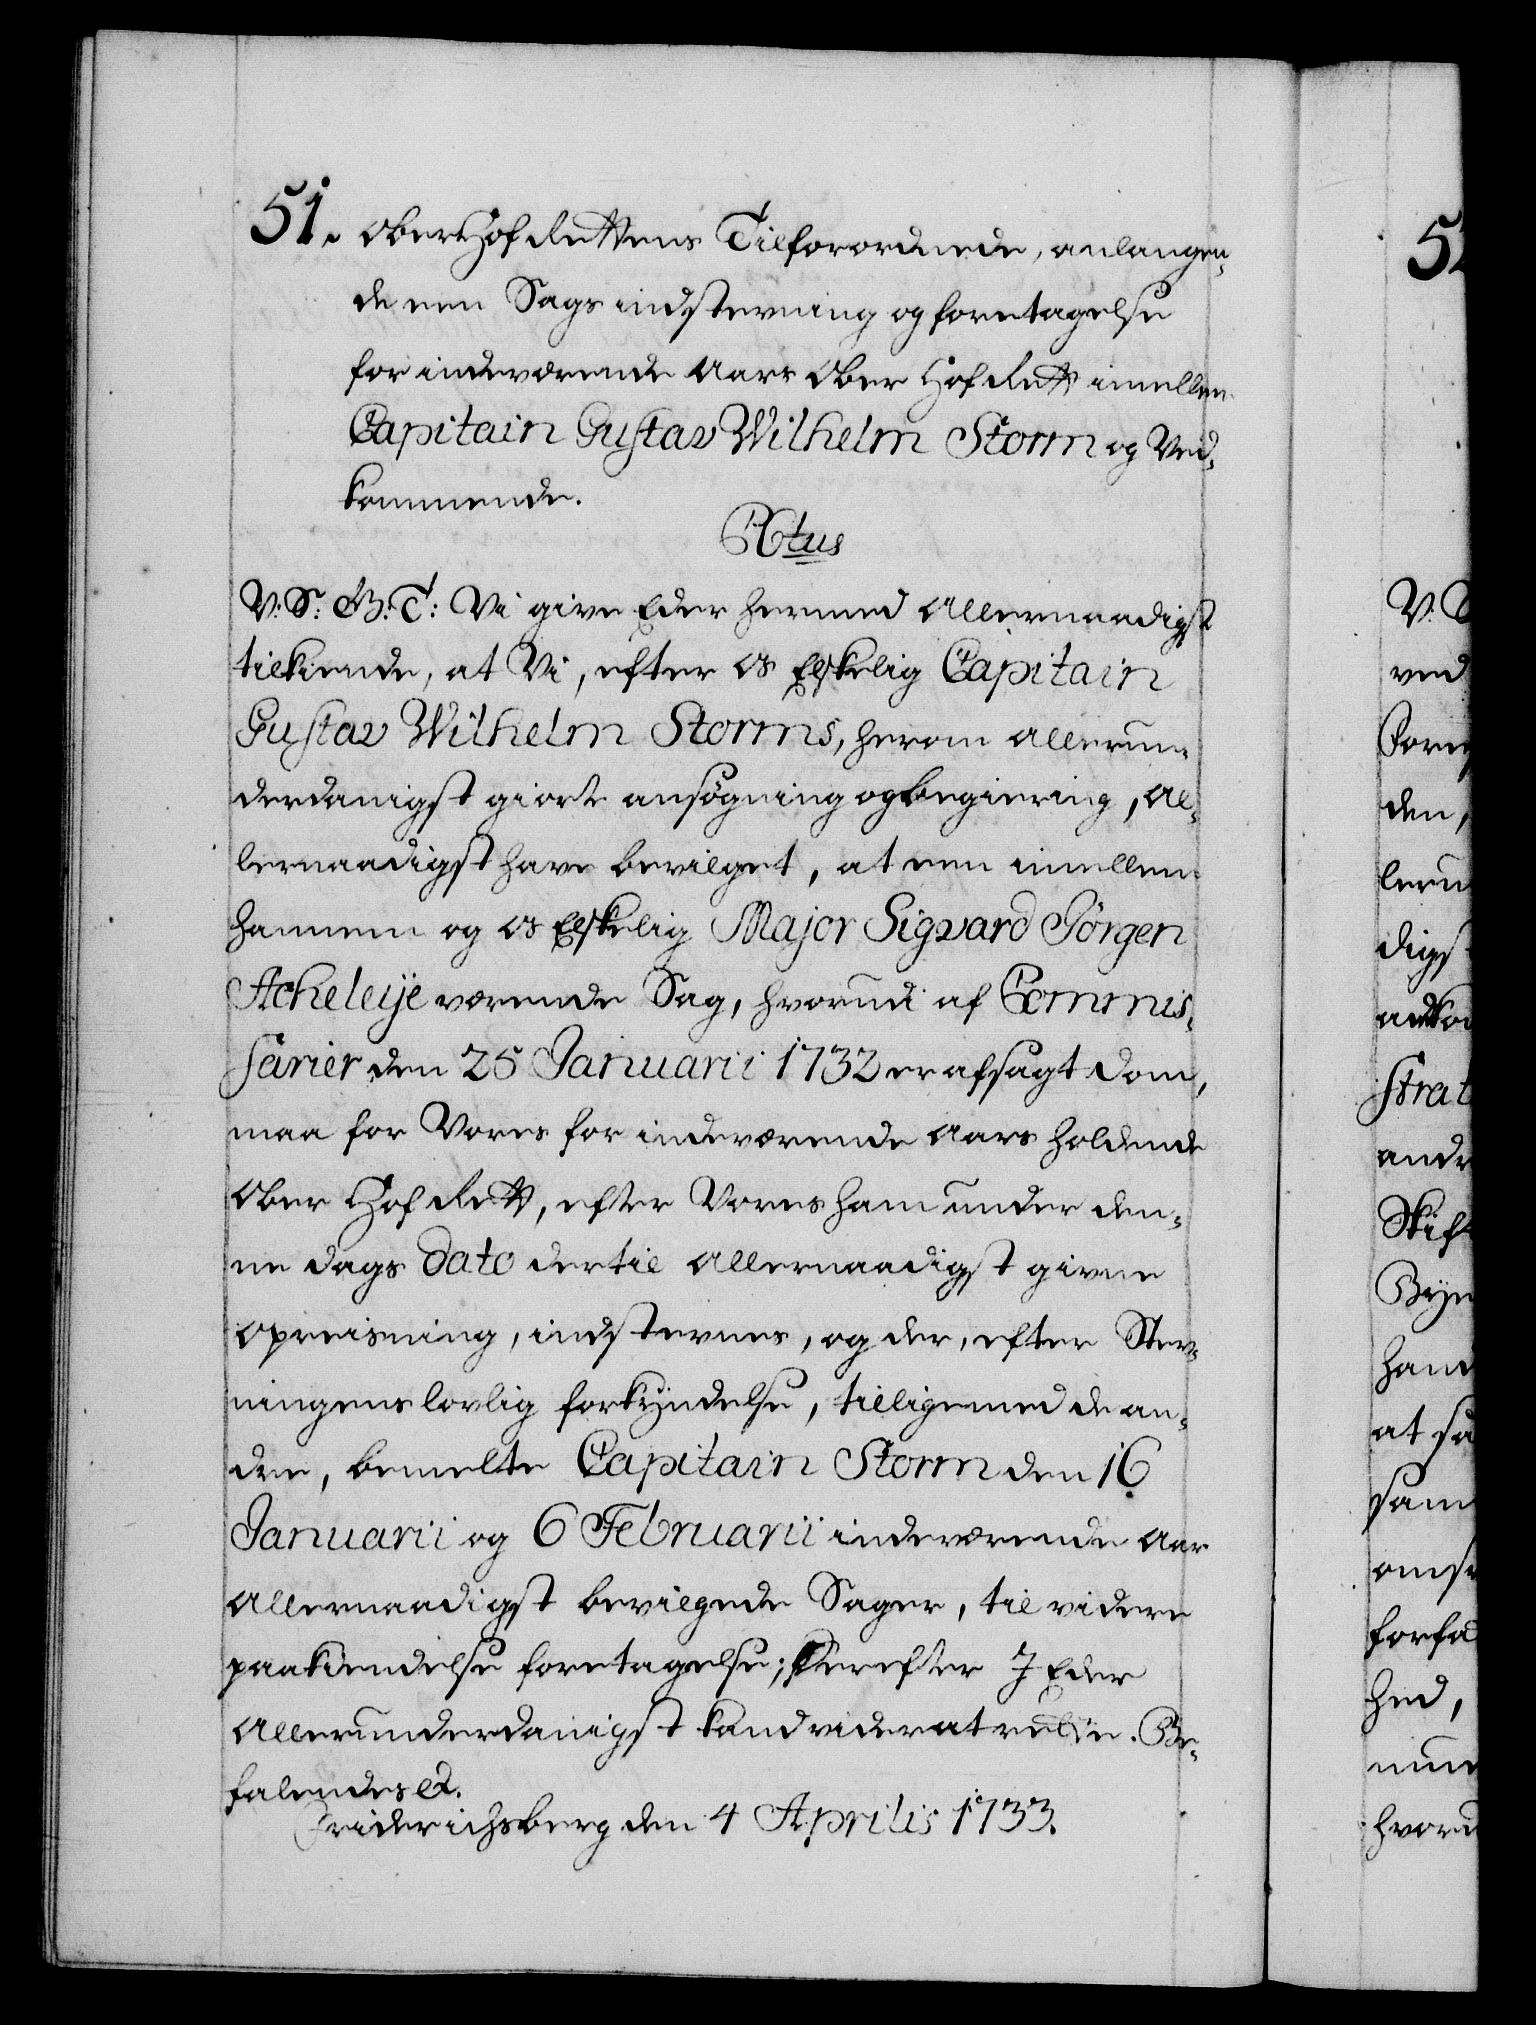 51. Ober Hof Rettens Tilforordnede, anlangen¬
de een Sags indstevning og foretagelse
for indeværende Aars Ober Hof Rett imellem
Capitain Gustav Wilhelm Storm og Ved¬
kommende.
Ctus
V: S: G: T: Vi give Eder hermed Allernaadigst
tilkiende, at Vi, efter os Elskelig Capitain
Gustav Wilhelm Storms, herom allerun¬
derdanigst giorte ansøgning og begiering, Al¬
lernaadigst have bevilget, at een imellem
hannem og os Elskelig Major Sigvard Jörgen
Acheleÿe værende Sag, hvorudi af Commis¬
sarier den 25 Januarii 1732 er afsagt Dom,
maa for Vores for indeværende Aars holdende
Ober Hof Rett, efter Vores ham under den¬
ne dags Dato dertil Allernaadigst givne
opreisning, indstevnes, og der, efter Stev¬
ningens lovlig forkyndelse, tilligemed de an¬
dre, bemelte Capitain Storm den 16
Januarii og 6 Februarii indeværende Aar
Allernaadigst bevilgede Sager, til videre
paakiendelse foretagelse; Derefter I Eder
Allerunderdanigst kand vider at rette. Be¬
falendes &.
Friderichsberg den 4 Aprilis 1733.
52
V. S
ved
den,
digst
Strat
andr
Stift
Byen
hand
at sa
sam
forfa
hed,
hvoru